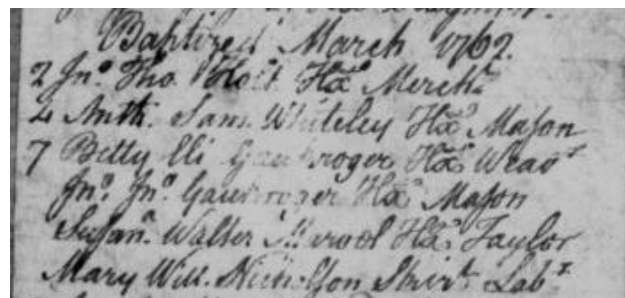 Baptized March 1762.
2 Jno. Tho. Holt Hx Mercht
4 Anth. Sam. Whiteley Hx Mason
7 Betty Eli Gaukroger Hx Weavr
Jno. Jno. Gaukroger Hx Mason
Susana. Walter Hx Taylor
Mary Will. Nicholson Skirt. Labr.